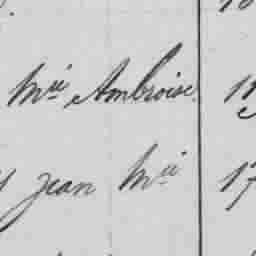 Mie Ambroise
Jean Mie 17